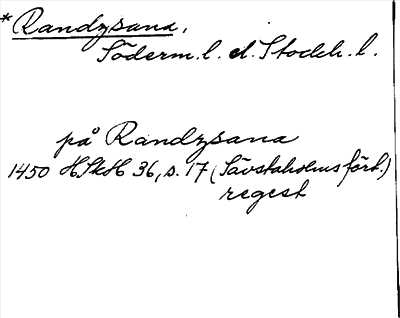 * Randzsana,
Söderm. l. el. Stockh. l.
på Randzsana
1450 HSkH 36, s. 17 (Sävstaholms fört.)
regest